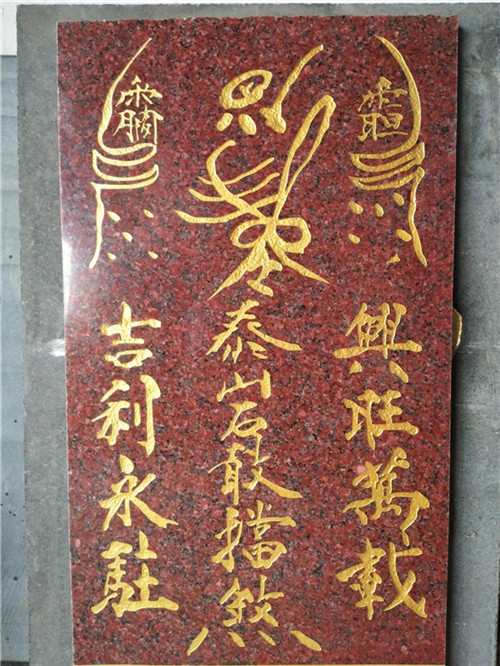 興旺萬載
泰山石敢擋煞
吉利永駐